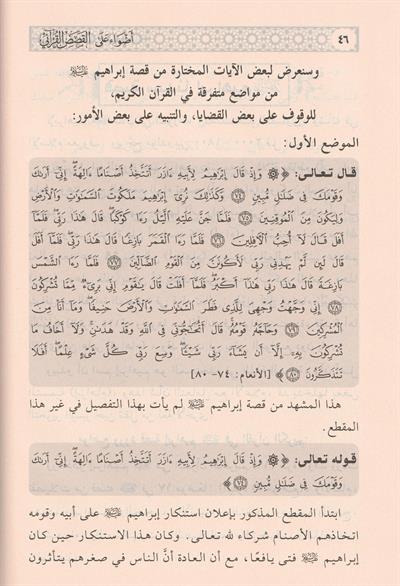 ٤٦ أضواء على القصص القرآني
وسنعرض لبعض الآيات المختارة من قصة إبراهيم ﷺ
من مواضع متفرقة في القرآن الكريم،
للوقوف على بعض القضايا، والتنبيه على بعض الأمور:
الموضع الأول:
قال تعالى: ﴿۞ وَإِذْ قَالَ إِبْرَٰهِيمُ لِأَبِيهِ ءَازَرَ أَتَتَّخِذُ أَصْنَامًا ءَالِهَةً إِنِّىٓ أَرَىٰكَ
وَقَوْمَكَ فِى ضَلَٰلٍ مُّبِينٍ ٧٤ وَكَذَٰلِكَ نُرِىٓ إِبْرَٰهِيمَ مَلَكُوتَ ٱلسَّمَٰوَٰتِ وَٱلْأَرْضِ
وَلِيَكُونَ مِنَ ٱلْمُوقِنِينَ ٧٥ فَلَمَّا جَنَّ عَلَيْهِ ٱلَّيْلُ رَءَا كَوْكَبًا قَالَ هَٰذَا رَبِّى فَلَمَّآ
أَفَلَ قَالَ لَآ أُحِبُّ ٱلْءَافِلِينَ ٧٦ فَلَمَّا رَءَا ٱلْقَمَرَ بَازِغًا قَالَ هَٰذَا رَبِّى فَلَمَّآ أَفَلَ
قَالَ لَئِن لَّمْ يَهْدِنِى رَبِّى لَأَكُونَنَّ مِنَ ٱلْقَوْمِ ٱلضَّآلِّينَ ٧٧ فَلَمَّا رَءَا ٱلشَّمْسَ
بَازِغَةً قَالَ هَٰذَا رَبِّى هَٰذَآ أَكْبَرُ فَلَمَّآ أَفَلَتْ قَالَ يَٰقَوْمِ إِنِّى بَرِىٓءٌ مِّمَّا تُشْرِكُونَ
٧٨ إِنِّى وَجَّهْتُ وَجْهِىَ لِلَّذِى فَطَرَ ٱلسَّمَٰوَٰتِ وَٱلْأَرْضَ حَنِيفًا وَمَآ أَنَا۠ مِنَ
ٱلْمُشْرِكِينَ ٧٩ وَحَآجَّهُۥ قَوْمُهُۥ قَالَ أَتُحَٰٓجُّوٓنِّى فِى ٱللَّهِ وَقَدْ هَدَىٰنِ وَلَآ أَخَافُ مَا
تُشْرِكُونَ بِهِۦٓ إِلَّآ أَن يَشَآءَ رَبِّى شَيْـًٔا وَسِعَ رَبِّى كُلَّ شَىْءٍ عِلْمًا أَفَلَا
تَتَذَكَّرُونَ ٨٠﴾ [الأنعام: ٧٤-٨٠]
هذا المشهد من قصة إبراهيم ﷺ لم يأت بهذا التفصيل في غير هذا
المقطع.
قوله تعالى: ﴿۞ وَإِذْ قَالَ إِبْرَٰهِيمُ لِأَبِيهِ ءَازَرَ أَتَتَّخِذُ أَصْنَامًا ءَالِهَةً إِنِّىٓ أَرَىٰكَ
وَقَوْمَكَ فِى ضَلَٰلٍ مُّبِينٍ ٧٤﴾
ابتدأ المقطع المذكور بإعلان استنكار إبراهيم ﷺ على أبيه وقومه
اتخاذهم الأصنام شركاء لله تعالى. وكان هذا الاستنكار حين كان
إبراهيم ﷺ فتى يافعًا، مع أن العادة أنَّ الناس في صغرهم يتأثرون